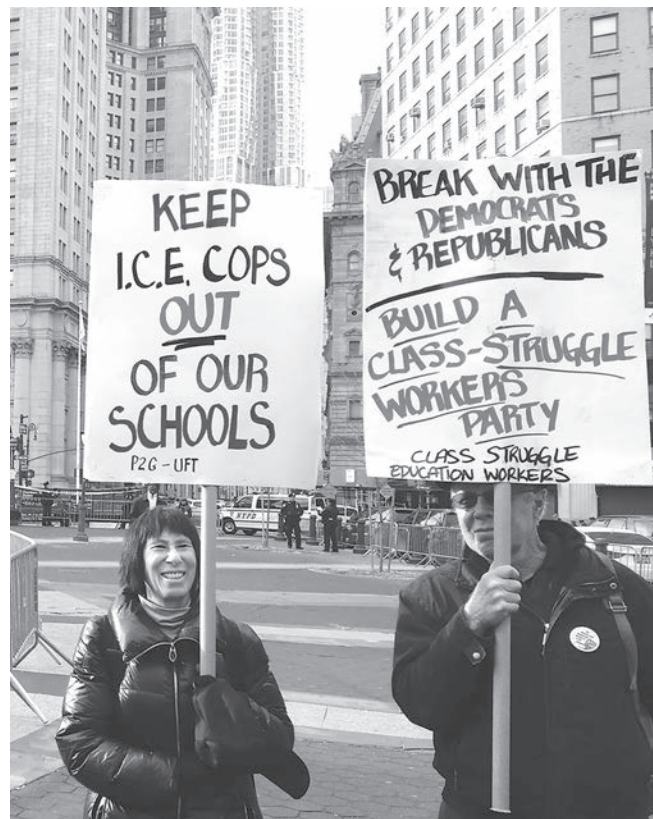 KEEP
I.C.E. COPS
OUT
OF OUR
SCHOOLS
P2G - UFT
BREAK WITH THE
DEMOCRATS
& REPUBLICANS
BUILD A
CLASS-STRUGGLE
WORKERS
PARTY
CLASS STRUGGLE
EDUCATION WORKERS
NYPD